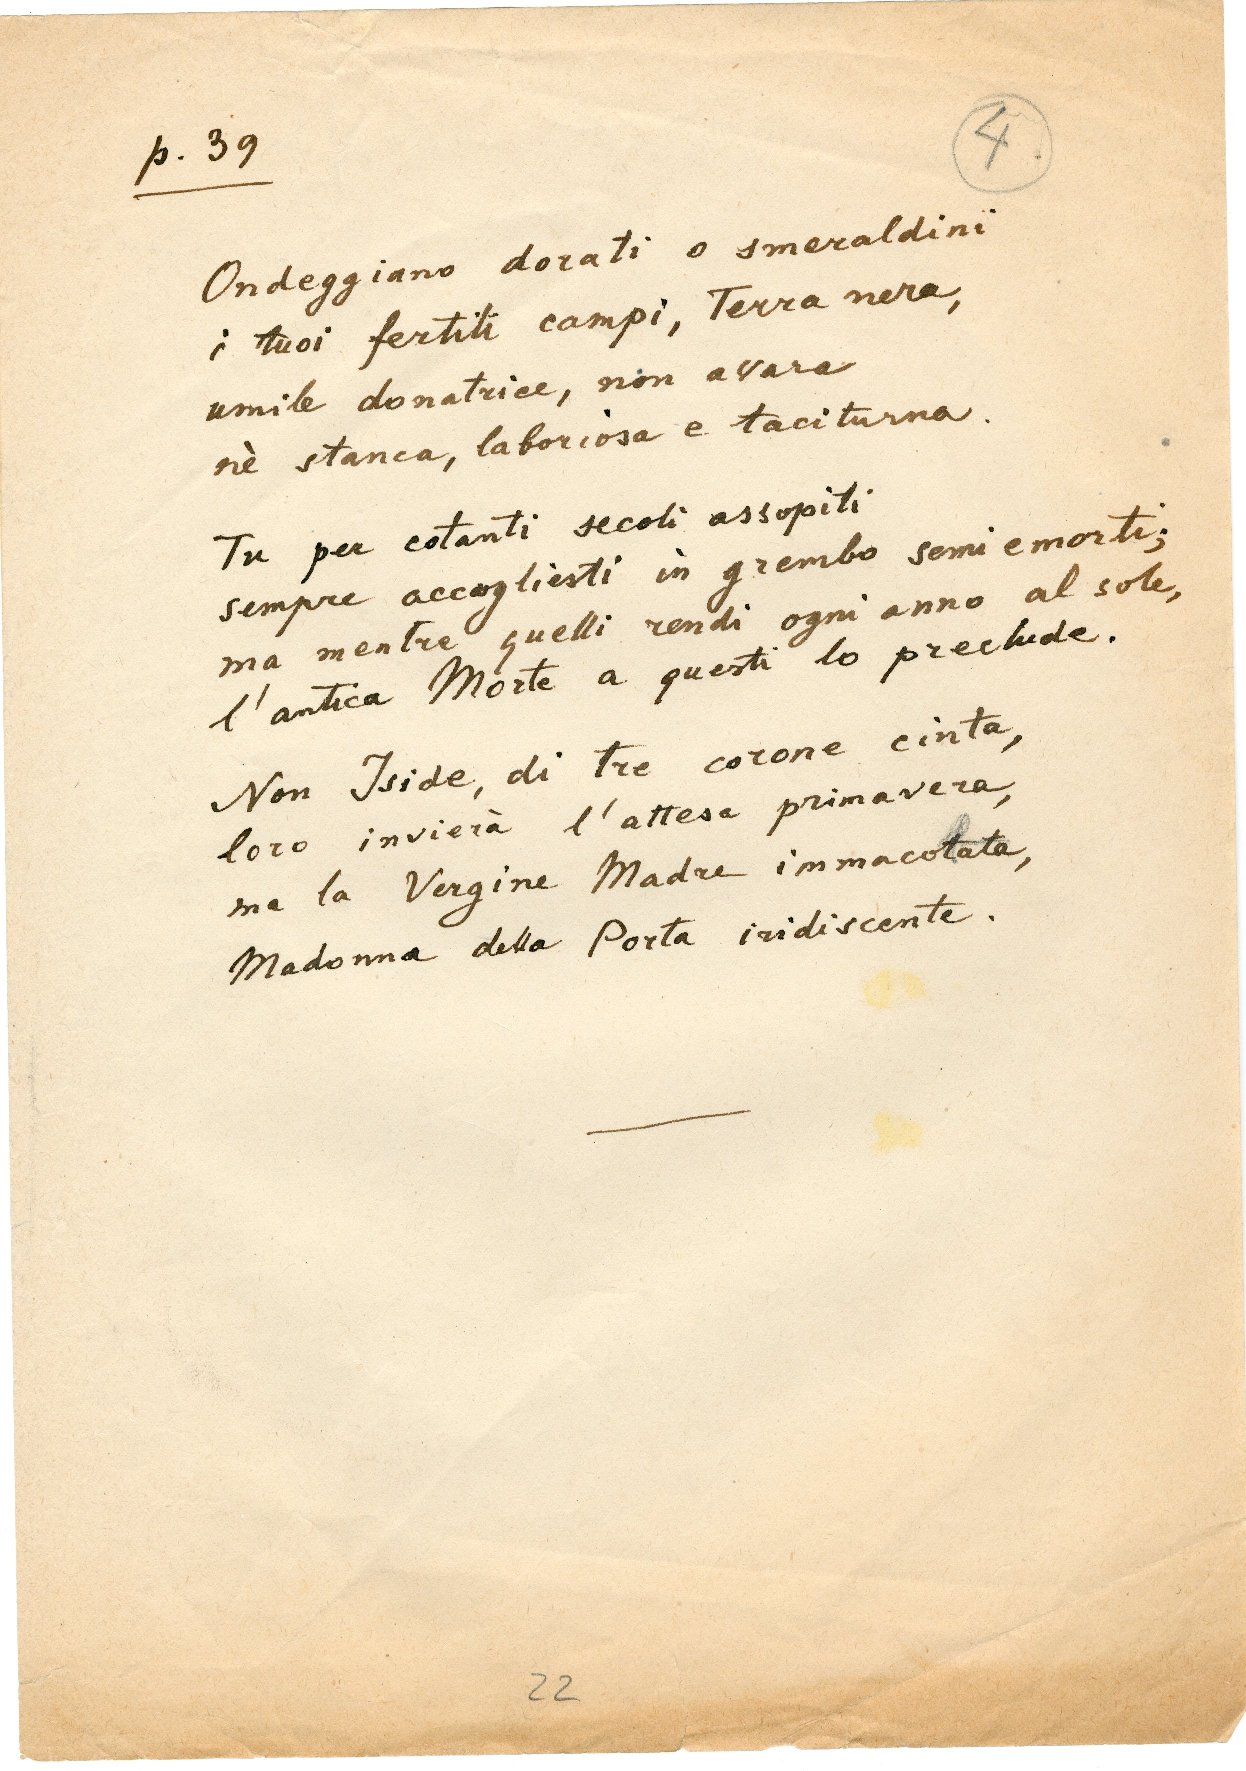 p. 39
4.
Ondeggiano dorati o smeraldini
i tuoi fertili campi, Terra nera,
umile donatrice, non avara
nè stanca, laboriosa e taciturna.
Tu per cotanti secoli assopiti
sempre accogliesti in grembo semi e morti;
ma mentre quelli rendi ogni anno al sole,
l'antica Morte a questi lo preclude.
Non Iside, di tre corone cinta,
loro invierà l'attesa primavera,
ma la Vergine Madre immacolata,
Madonna della Porta iridiscente.
22